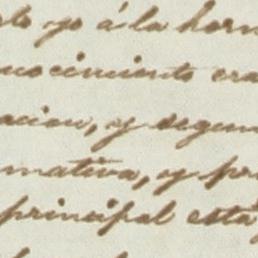 yo á la horn
nocimiento era
acion, y segun
mativa, y pr
principal está